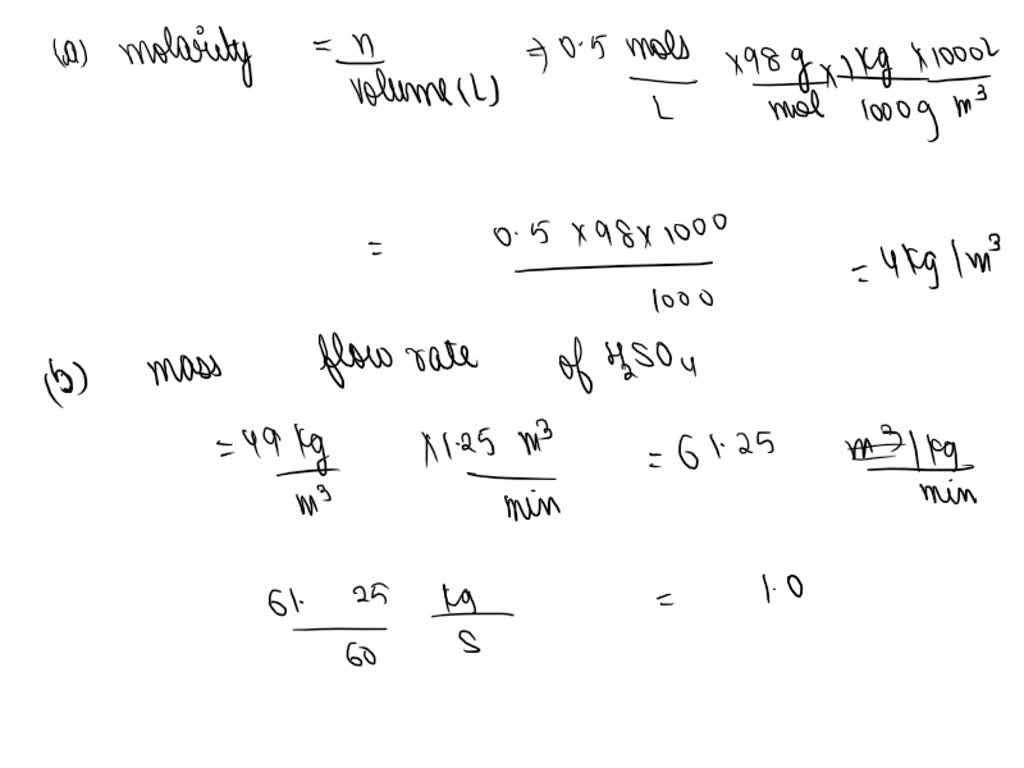 (a) molarity = n / volume (L) ⇒ 0.5 mols / L × 98 g / mol × 1 kg / 1000 g × 1000 L / m³
= 0.5 × 98 × 1000 / 1000 = 4 kg / m³
(b) mass flow rate of H₂SO₄
= 49 kg / m³ × 1.25 m³ / min = 61.25 kg / min
61.25 / 60 kg / s = 1.0